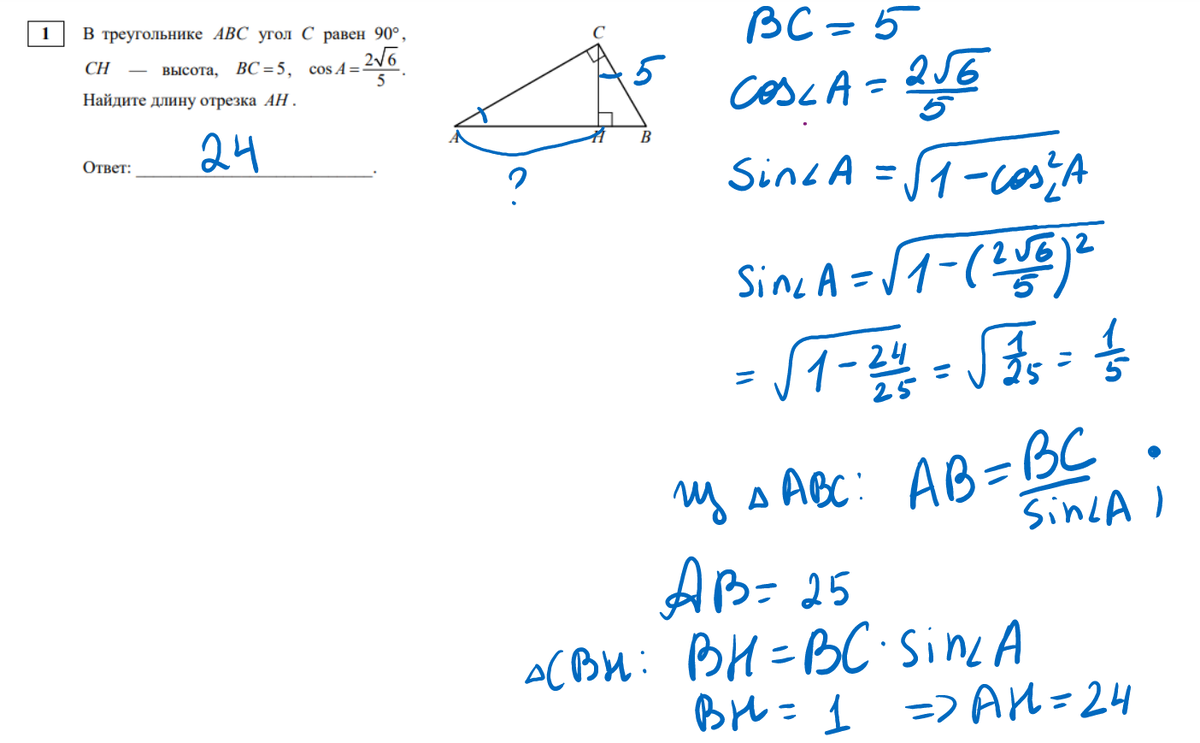 1
В треугольнике ABC угол C равен 90°,
CH — высота, BC = 5, cos A = 2√6/5.
Найдите длину отрезка AH.
Ответ: 24.
C
5
A
H
B
?
BC = 5
cos∠A = 2√6/5
sin∠A = √(1 - cos²∠A)
sin∠A = √(1 - (2√6/5)²)
= √(1 - 24/25) = √(1/25) = 1/5
из △ABC: AB = BC/sin∠A ;
AB = 25
△CBH: BH = BC · sin∠A
BH = 1 => AH = 24